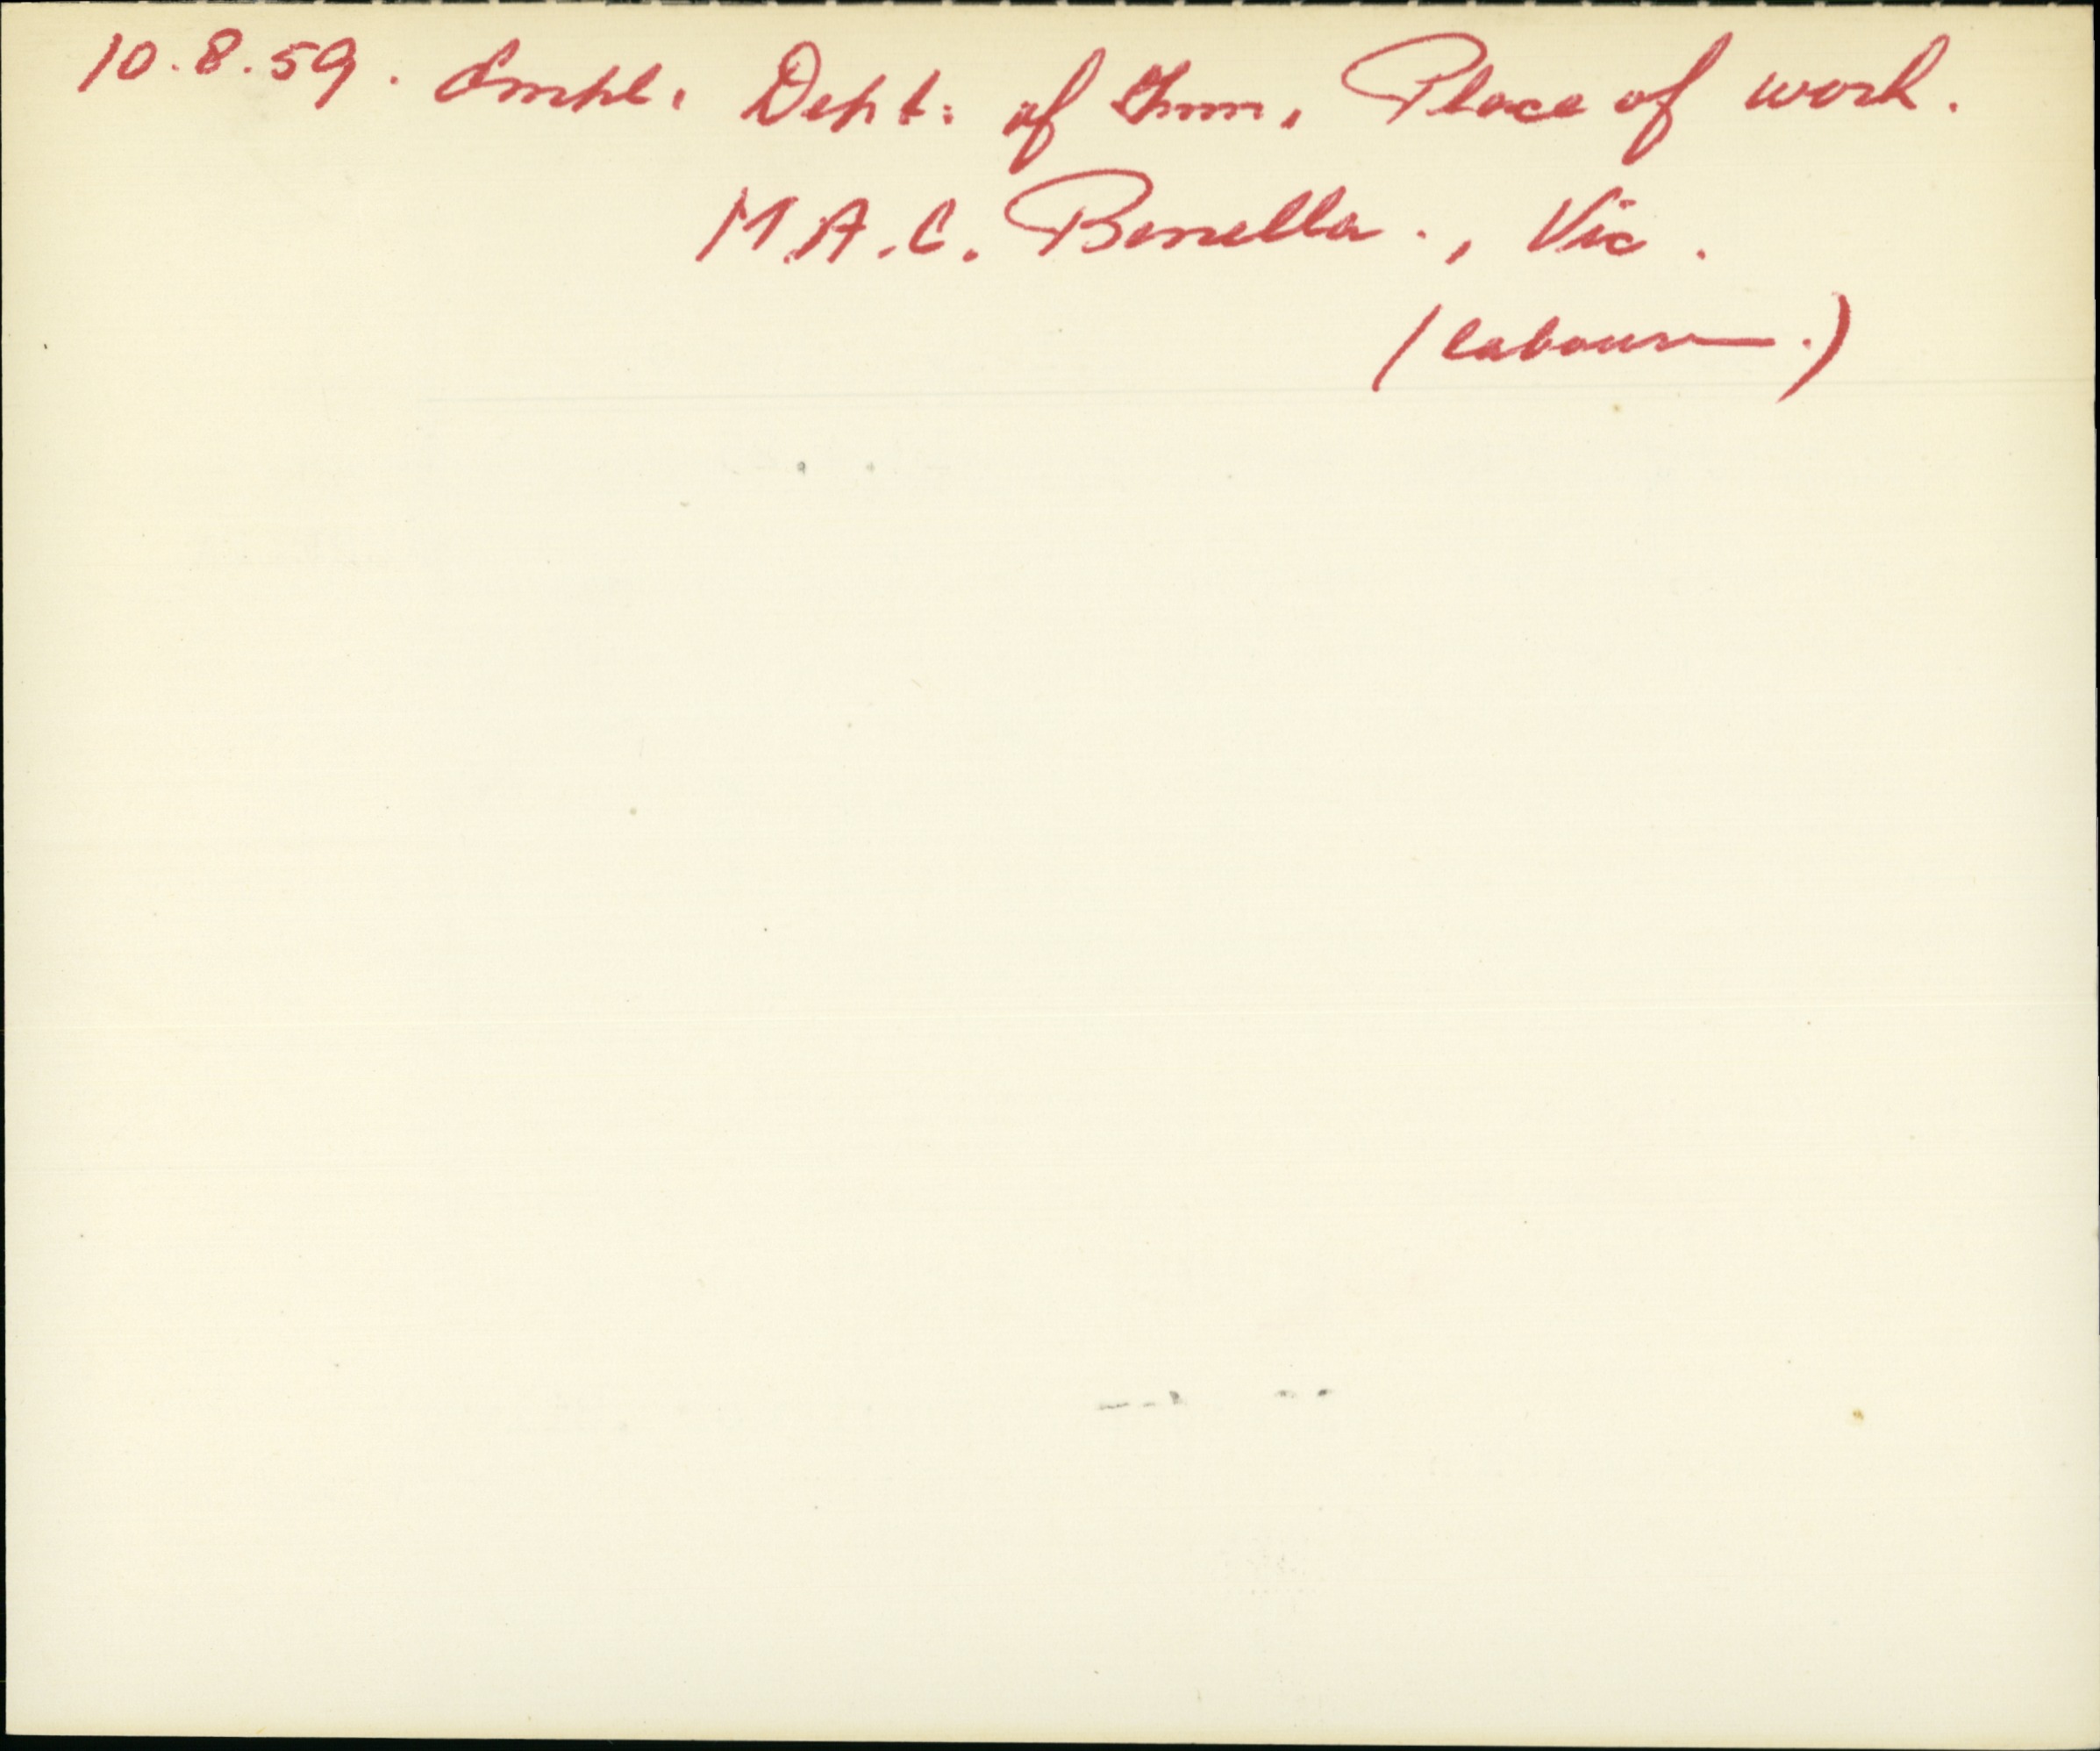 10.8.59. Empl. Dept. of Imm. Place of work.
M.A.C. Benella., Vic.
(labourer.)